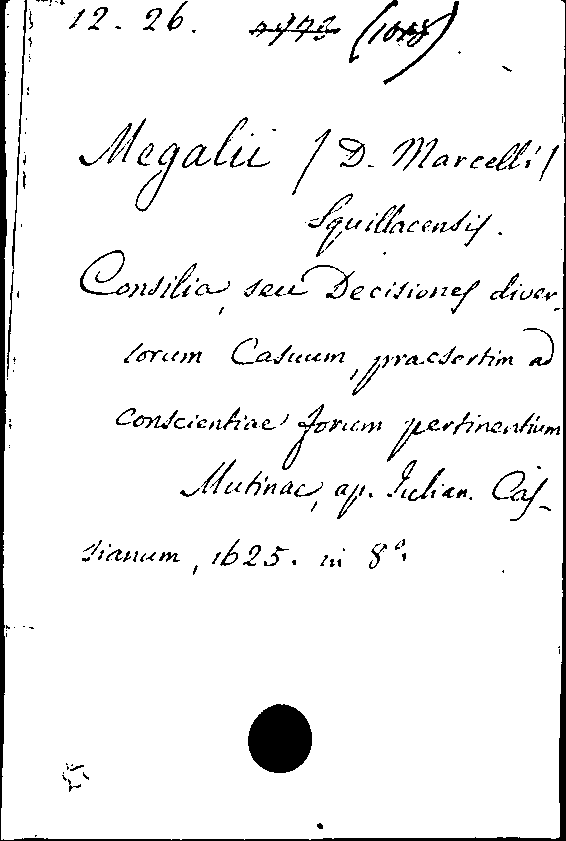 12. 26.
Megalii / D. Marcelli /
Squillacensis.
Consilia, seu Decisiones diver-
sorum Casuum, praesertim ad
conscientiae forum pertinentium
Mutinae, ap. Iulian. Cas-
sianum, 1625. in 8°.